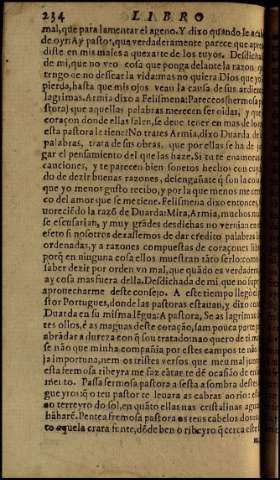 234 LIBRO
mal, que para lamentar el ageno. Y dixo quando le
de oyr: Ay pastor, que verdaderamente parece que apren
diste en mis males a quexarte de los tuyos. Desdichada
de mi, que no veo cosa que ponga delante la razon q
tengo de no dessear la vida: mas no quiera Dios que yo
pierda, hasta que mis ojos vean la causa de sus ardientes
lagrimas. Armia dixo a Felismena: Pareceos (hermosa pa
stora) que aquellas palabras merecen ser oidas, y que
coraçon donde ellas salen, se deue tener en mas de lo
esta pastora le tiene? No trates Armia, dixo Duarda de
palabras, trata de sus obras, que por ellas se ha de juz
gar el pensamiento del que las haze. Si tu te enamoras
canciones, y te parecen bien sonetos hechos con cuyda
do de dezir buenas razones, desengañate q son la cosa
que yo menos gusto recibo, y por la que menos me
co del amor que se me tiene. Felismena dixo entonces,
uoreciẽdo la razõ de Duarda: Mira, Armia, muchos males
se escusarian, y muy grādes desdichas no vernian en
efeto si nosotres dexassemos de dar credito palabras
ordenadas, y a razones compuestas de coraçones libres
porq̃ en ninguna cosa ellos muestran tãto serlo: como
saber dezir por orden vn mal, que quãdo es verdadero
ay cosa mas fuera della. Desdichada de mi que no supe
aprouecharme deste consejo. A este tiempo llego
stor Portugues, donde las pastoras estauan, y dixo co
Duarda en su misma lẽgua: A pastora, Se as lagrimas
tes ollos, è as maguas deste coração, sam pouca parte
abrādar a dureza con q̃ sou tratado: nao quero de ti mais
se não que minha companhia por estes campos te não
ja importuna, nem os tristes versos que meu mal junto
esta fermosa ribeyra me faz cãtar te dè ocasão de enfa
mẽto. Passa fermosa pastora a sesta a sombra destes
gueyros: q̃ o teu pastor te leuara as cabras ao rio: e
ao terreyro do sol, en quãto ellas nas cristalinas aguas
bãharẽ. Pentea fremosa pastora os teus cabelos dou
to aquela crara fente, dõde ben o ribeyro q̃ cerca este